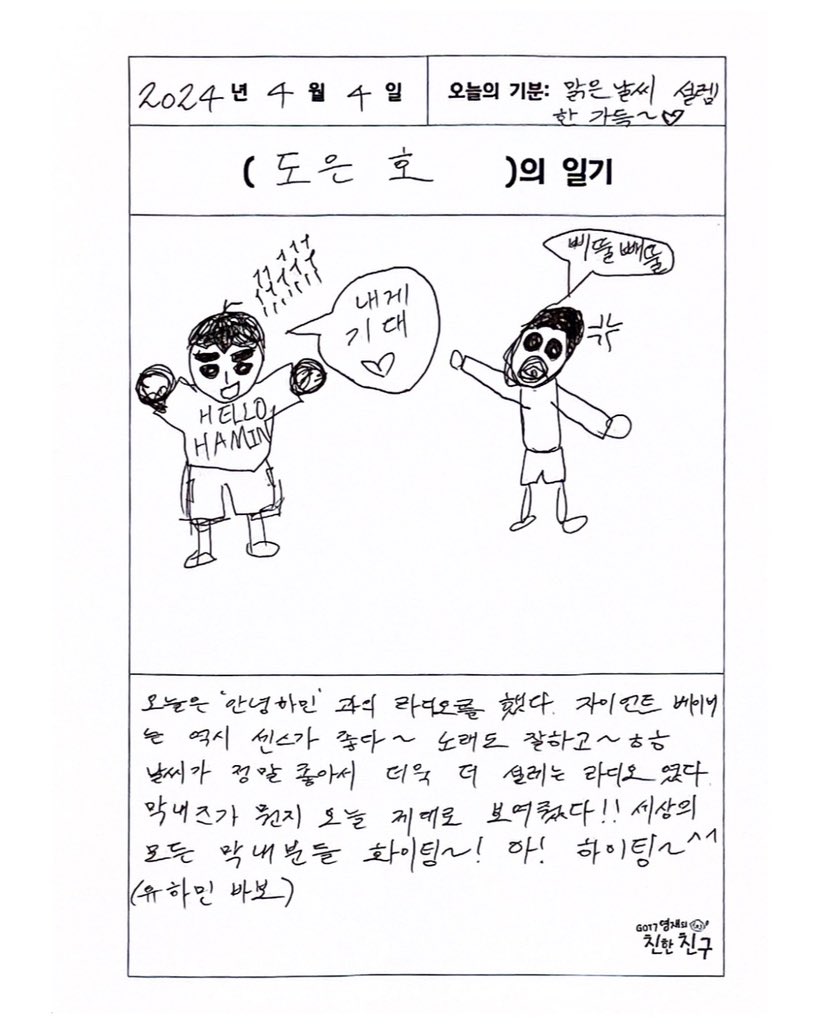 2024년 4월 4일
오늘의 기분: 맑은 날씨 설렘
한 가득~♡
( 도은호 )의 일기
내게
기대
♡
삐뚤빼뚤
HELLO
HAMIN
오늘은 '안녕하민' 과의 라디오를 했다. 자이언트 베이비
는 역시 센스가 좋다~ 노래도 잘하고~ ㅎㅎ
날씨가 정말 좋아서 더욱 더 설레는 라디오 였다.
막내즈가 뭔지 오늘 제대로 보여줬다!! 세상의
모든 막내분들 화이팅~! 아! 하이팅~^^
(유하민 바보)
GOT7 영재의
친한친구